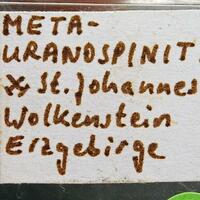 META-
URANOSPINIT.
⚒ St. Johannes
Wolkenstein
Erzgebirge